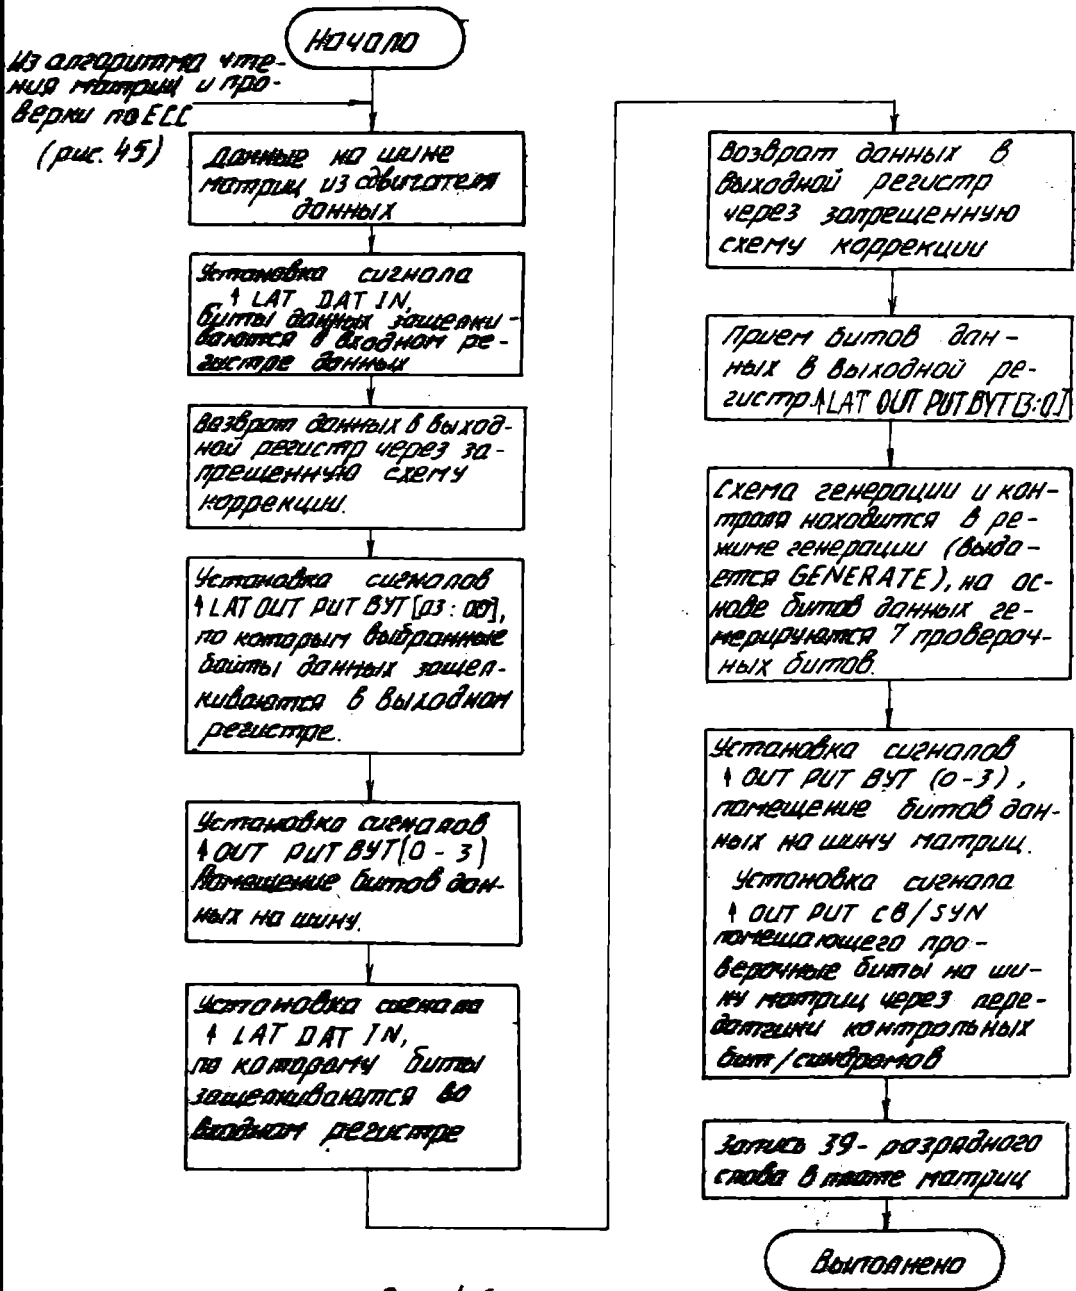 Начало
Из алгоритма чте-
ния матриц и про-
верки по ECC
(рис. 45)
Данные на шине
матриц из сдвигателя
данных
Установка сигнала
↑ LAT DAT IN,
биты данных защелки-
ваются в входном ре-
гистре данных
Возврат данных в выход-
ной регистр через за-
прещенную схему
коррекции.
Установка сигналов
↑ LAT OUT PUT BYT [03:00],
по которым выбранные
байты данных защел-
киваются в выходном
регистре.
Установка сигналов
↑ OUT PUT BYT (0-3)
Помещение битов дан-
ных на шину.
Установка сигнала
↑ LAT DAT IN,
по которому биты
защелкиваются во
входном регистре
Возврат данных в
выходной регистр
через запрещенную
схему коррекции
Прием битов дан-
ных в выходной ре-
гистр ↑ LAT OUT PUT BYT [3:0]
Схема генерации и кон-
троля находится в ре-
жиме генерации (выда-
ется GENERATE), на ос-
нове битов данных ге-
нерируются 7 провероч-
ных битов.
Установка сигналов
↑ OUT PUT BYT (0-3),
помещение битов дан-
ных на шину матриц.
Установка сигнала
↑ OUT PUT CB/SYN
помещающего про-
верочные биты на ши-
ну матриц через пере-
датчики контрольных
бит/синдромов
Запись 39-разрядного
слова в плате матриц
Выполнено